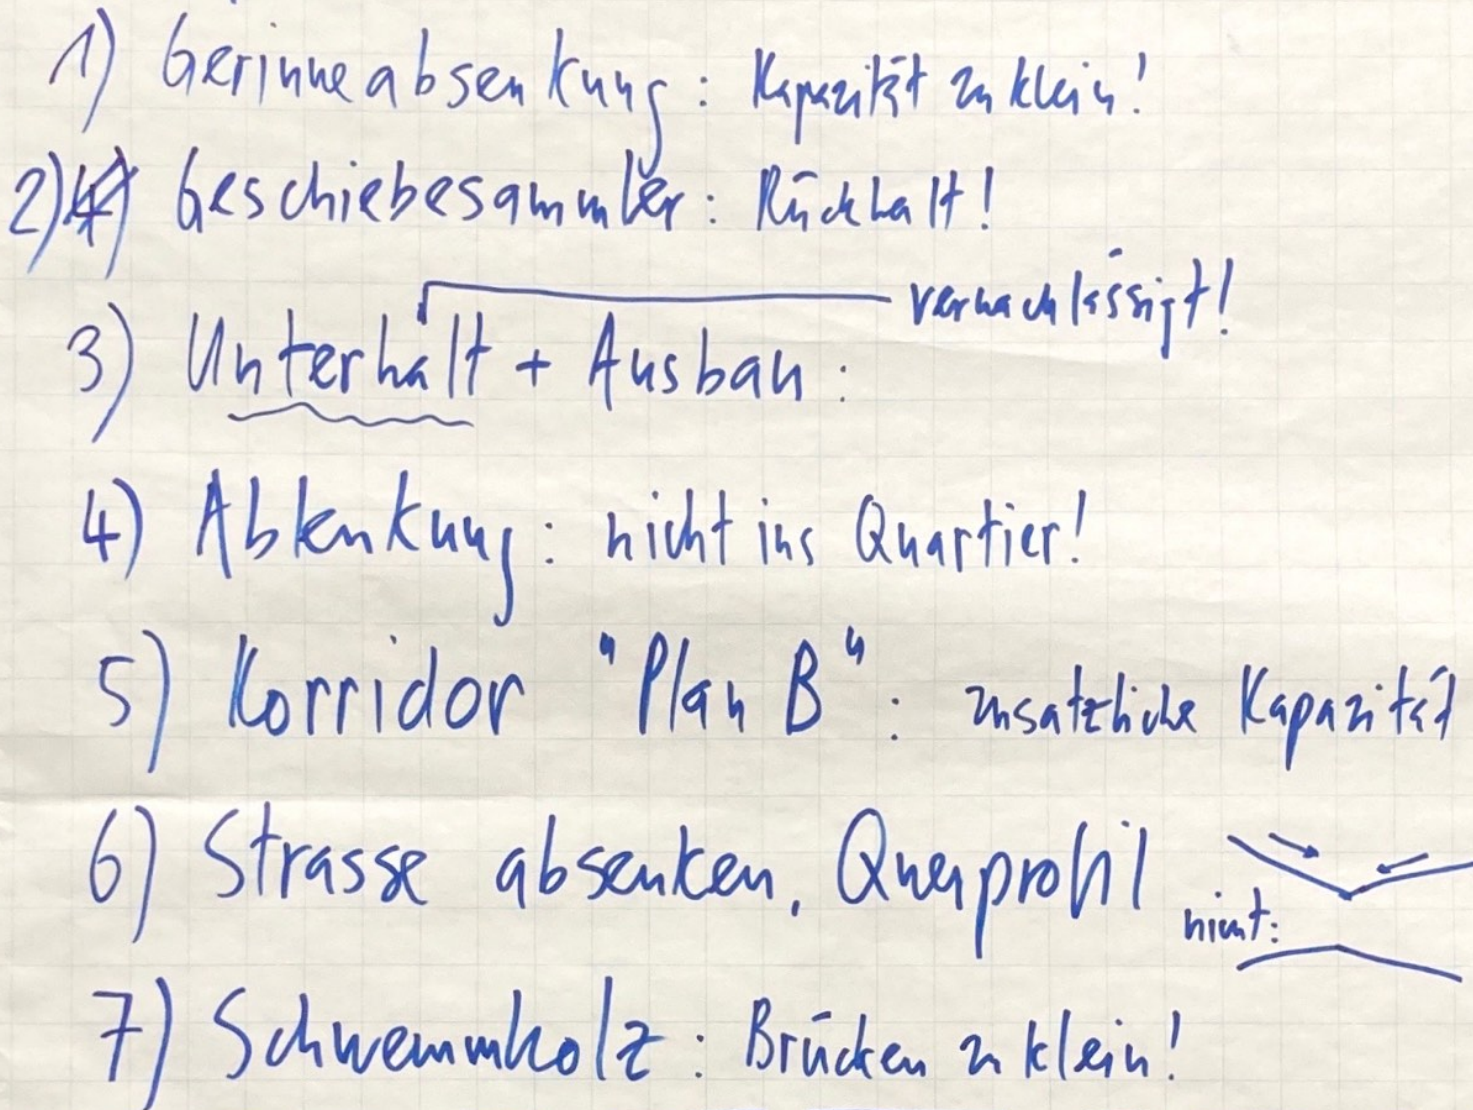 1) Gerinneabsenkung: Kapazität zu klein!
2) Geschiebesammler: Rückhalt!
vernachlässigt!
3) Unterhalt + Ausbau:
4) Ablenkung: nicht ins Quartier!
5) Korridor "Plan B": zusätzliche Kapazität
6) Strasse absenken, Querprofil
nicht:
7) Schwemmholz: Brücken zu klein!